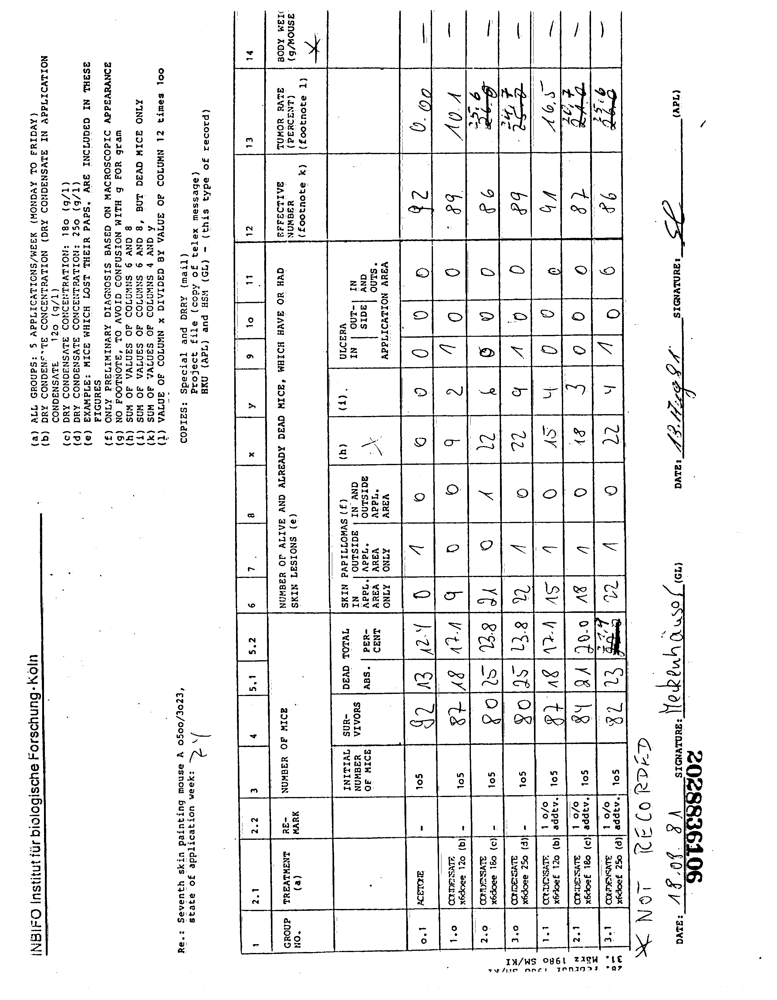 INBIFO Institut für biologische Forschung·Köln
Re.: Seventh skin painting mouse A 0500/3023,
state of application week: 74
(a) ALL GROUPS: 5 APPLICATIONS/WEEK (MONDAY TO FRIDAY)
(b) DRY CONDENSATE CONCENTRATION (DRY CONDENSATE IN APPLICATION
CONDENSATE 12o (g/l)
(c) DRY CONDENSATE CONCENTRATION: 18o (g/l)
(d) DRY CONDENSATE CONCENTRATION: 25o (g/l)
(e) EXAMPLE: MICE WHICH LOST THEIR PAPS. ARE INCLUDED IN THESE
FIGURES
(f) ONLY PRELIMINARY DIAGNOSIS BASED ON MACROSCOPIC APPEARANCE
(g) NO FOOTNOTE, TO AVOID CONFUSION WITH g FOR gram
(h) SUM OF VALUES OF COLUMNS 6 AND 8
(i) SUM OF VALUES OF COLUMNS 6 AND 8, BUT DEAD MICE ONLY
(k) SUM OF VALUES OF COLUMNS 4 AND y
(l) VALUE OF COLUMN x DIVIDED BY VALUE OF COLUMN 12 times 1oo
COPIES: Special and DRRY (mail)
Project file (copy of telex message)
HKU (APL) and HSM (GL) - (this type of record)
1 2.1 2.2 3 4 5.1 5.2 6 7 8 x y 9 1o 11 12 13 14
GROUP NO. TREATMENT (a) RE-MARK NUMBER OF MICE NUMBER OF ALIVE AND ALREADY DEAD MICE, WHICH HAVE OR HAD SKIN LESIONS (e) EFFECTIVE NUMBER (footnote k) TUMOR RATE (PERCENT) (footnote l) BODY WEI (g/MOUSE *
INITIAL NUMBER OF MICE SUR-VIVORS DEAD TOTAL ABS. PER-CENT SKIN PAPILLOMAS (f) IN APPL. AREA ONLY OUTSIDE APPL. AREA ONLY IN AND OUTSIDE APPL. AREA (h) (i). ULCERA IN OUT-SIDE IN AND OUTS. APPLICATION AREA
o.1 ACETONE - 1o5 92 13 12.4 0 1 0 0 0 0 0 0 92 0.00 —
1.0 CONDENSATE x6doee 12o (b) - 1o5 87 18 17.1 9 0 0 9 2 1 0 0 89 10.1 —
2.0 CONDENSATE x6doee 18o (c) - 1o5 80 25 23.8 21 0 1 22 6 0 0 0 86 25.6 —
3.0 CONDENSATE x6doee 25o (d) - 1o5 80 25 23.8 22 1 0 22 9 1 0 0 89 24.7 —
1.1 CONDENSATE x6doef 12o (b) 1 o/o addtv. 1o5 87 18 17.1 15 1 0 15 4 0 0 0 91 16.5 —
2.1 CONDENSATE x6doef 18o (c) 1 o/o addtv. 1o5 84 21 20.0 18 1 0 18 3 0 0 0 87 20.7 —
3.1 CONDENSATE x6doef 25o (d) 1 o/o addtv. 1o5 82 23 22 1 0 22 4 1 0 0 86 25.6 —
* NOT RECORDED
DATE: 18.08.81 SIGNATURE: Meckenhäuser (GL) DATE: 13. Aug 81 SIGNATURE: (APL)
2028836106
31. März 1980 SM/KI